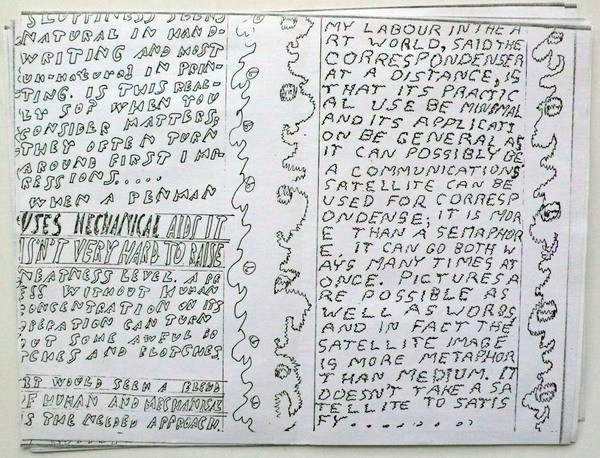 SLOPPINESS SEEMS
NATURAL IN HAND-
WRITING AND MOST
UN-NATURAL IN PRIN-
TING. IS THIS REAL-
LY SO? WHEN YOU
CONSIDER MATTERS,
THEY OFTEN TURN
AROUND FIRST IMP-
RESSIONS.....
WHEN A PENMAN
USES MECHANICAL AIDS IT
ISN'T VERY HARD TO RAISE
NEATNESS LEVEL. A PR
ESS WITHOUT HUMAN
CONCENTRATION ON ITS
OPERATION CAN TURN
OUT SOME AWFUL BO
TCHES AND BLOTCHES
IT WOULD SEEM A BLEND
OF HUMAN AND MECHANICAL
IS THE NEEDED APPROACH.
MY LABOUR IN THE A
RT WORLD, SAID THE
CORRESPONDENSER
AT A DISTANCE, IS
THAT ITS PRACTIC
AL USE BE MINIMAL
AND ITS APPLICATI
ON BE GENERAL AS
IT CAN POSSIBLY BE
A COMMUNICATIONS
SATELLITE CAN BE
USED FOR CORRESP
ONDENSE; IT IS MOR
E THAN A SEMAPHOR
E. IT CAN GO BOTH W
AYS MANY TIMES AT
ONCE. PICTURES A
RE POSSIBLE AS
WELL AS WORDS
AND IN FACT THE
SATELLITE IMAGE
IS MORE METAPHOR
THAN MEDIUM. IT
DOESN'T TAKE A SA
TELLITE TO SATIS
FY.......